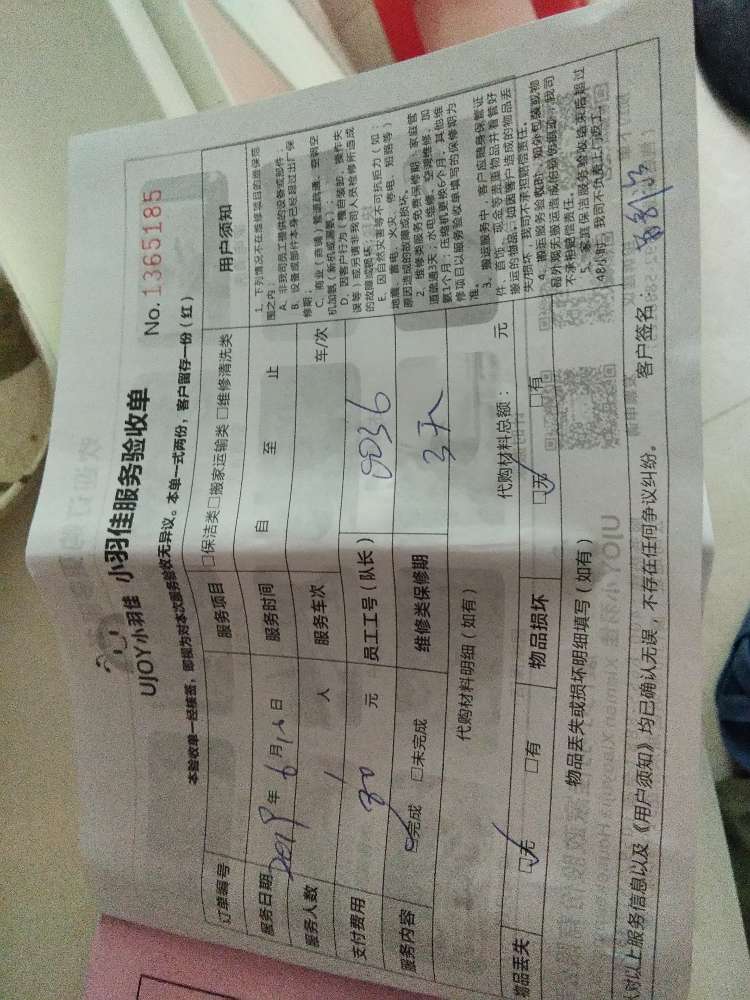 UJOY小羽佳 小羽佳服务验收单
No. 1365185
本验收单一经接签，即视为对本次服务验收无异议。本单一式两份，客户留存一份（红）
订单编号 服务项目 □保洁类□搬家运输类 □维修清洗类
服务日期 2019年6月12日 服务时间 自 至 止
服务人数 1人 服务车次 车/次
支付费用 80元 员工工号（队长） 0036
服务内容 ☑完成 □未完成 维修类保修期 3天
代购材料明细（如有） 代购材料总额： 元
物品丢失 ☑无 □有 物品损坏 ☑无 □有
物品丢失或损坏明细填写（如有）
用户须知
1、下列情况不在维修项目的质保范
围之内：
A、非我司员工提供的设备或部件，
B、设备或部件本身已经超过出厂保
修期；
C、商业（商铺）管道疏通、空调空
机加氨（新机或漏氨）；
D、因客户行为（擅自装卸、操作失
误等）或另请非我司人员检修所造成
的故障或损坏；
E、因自然灾害等不可抗拒力（如：
地震、雷电、火灾、停电、短路等）
原因造成的故障或损坏。
2、维修类服务免费保修期：家庭管
道疏通3天，水电维修、空调维修、加
氨1个月，压缩机更换6个月，其他维
修项目以服务验收单填写的保修期为
准。
3、搬运服务中，客户应随身保管证
件、首饰、现金等贵重物品并看管好
搬运的物品，如因客户造成的物品丢
失损坏，我司不承担赔偿责任。
4、搬运服务验收时，如外包装或物
品外观无搬运造成的损伤、我司
不承担赔偿责任。
5、家庭保洁服务验收结束后超过
48小时，我司不负责上门返工。
对以上服务信息以及《用户须知》均已确认无误，不存在任何争议纠纷。 客户签名：